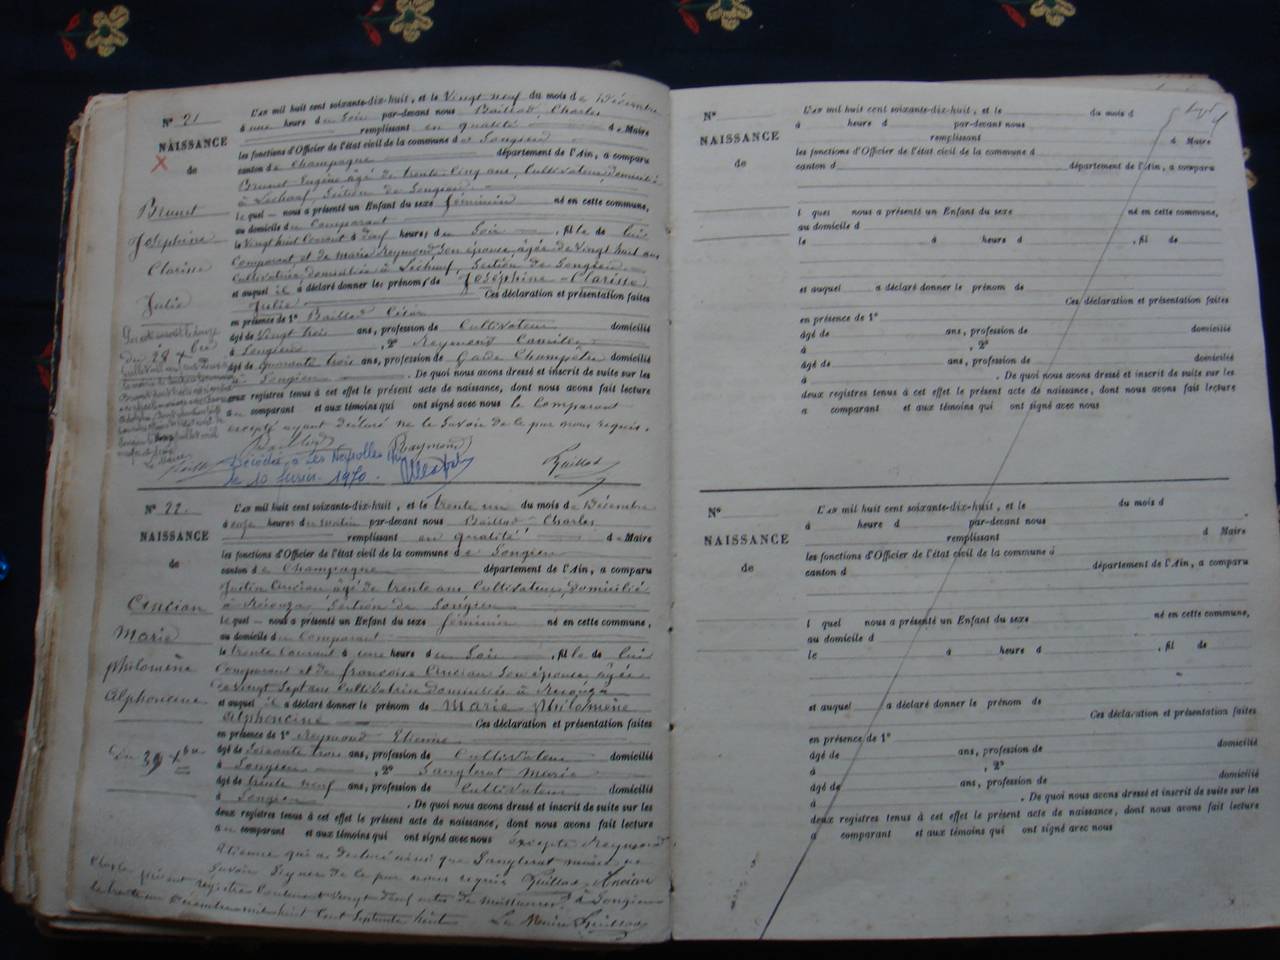 N° 21
NAISSANCE
de
Brunet
Joséphine
Clarisse
Julie
L'an mil huit cent soixante-dix-huit, et le vingt neuf du mois de Décembre
à une heure du Soir par-devant nous Baillod Charles
remplissant en qualité de Maire
les fonctions d'Officier de l'état civil de la commune de Songieu
canton de Champagne département de l'Ain, a comparu
Brunet Eugène âgé de trente cinq ans, Cultivateur, domicilié
à Lochauf, Section de Songieu
lequel nous a présenté un Enfant du sexe féminin né en cette commune,
au domicile du Comparant
le vingt huit courant à neuf heures du Soir, fille de lui
Comparant et de Marie Reymond Son épouse, âgée de vingt huit ans
Cultivatrice domiciliée à Lochauf, Section de Songieu
et auquel il a déclaré donner les prénoms de Joséphine - Clarisse
Julie Ces déclaration et présentation faites
en présence de 1° Baillod César
âgé de vingt trois ans, profession de Cultivateur domicilié
à Songieu, 2° Reymond Camille
âgé de quarante trois ans, profession de Garde Champêtre domicilié
à Songieu. De quoi nous avons dressé et inscrit de suite sur les
deux registres tenus à cet effet le présent acte de naissance, dont nous avons fait lecture
au comparant et aux témoins qui ont signé avec nous le Comparant
excepté ayant déclaré ne le Savoir de ce par nous requis.
du 28 Xbre
Baillod Raymond
Décédée à Les Neyrolles
le 10 février 1970.
N° 22
NAISSANCE
de
Crucian
Marie
Philomène
Alphoncine
du 30 Xbre
L'an mil huit cent soixante-dix-huit, et le trente un du mois de Décembre
à onze heures du matin par-devant nous Baillod Charles
remplissant en qualité de Maire
les fonctions d'Officier de l'état civil de la commune de Songieu
canton de Champagne département de l'Ain, a comparu
Justin Crucian âgé de trente ans Cultivateur, Domicilié
à Section de Songieu
lequel nous a présenté un Enfant du sexe féminin né en cette commune,
au domicile du Comparant
le trente courant à une heure du Soir, fille de lui
Comparant et de françoise Crucian Son épouse âgée
de vingt Sept ans Cultivatrice domiciliée à
et auquel il a déclaré donner le prénom de Marie Philomène
Alphoncine Ces déclaration et présentation faites
en présence de 1° Reymond Etienne
âgé de soixante trois ans, profession de Cultivateur domicilié
à Songieu, 2° Sanglerat Marie
âgé de trente neuf ans, profession de Cultivateur domicilié
à Songieu. De quoi nous avons dressé et inscrit de suite sur les
deux registres tenus à cet effet le présent acte de naissance, dont nous avons fait lecture
au comparant et aux témoins qui ont signé avec nous excepté Reymond
Etienne qui a déclaré ainsi que Sanglerat ne
Savoir Signer de ce par nous requis
Clos le présent registre Contenant vingt deux actes de naissances à Songieu
le trente un Décembre mil huit Cent Septante huit Le Maire
N°
NAISSANCE
de
L'an mil huit cent soixante-dix-huit, et le du mois d
à heure d par-devant nous
remplissant d Maire
les fonctions d'Officier de l'état civil de la commune d
canton d département de l'Ain, a comparu
l quel nous a présenté un Enfant du sexe né en cette commune,
au domicile d
le à heure d, fil de
et auquel a déclaré donner le prénom de
Ces déclaration et présentation faites
en présence de 1°
âgé de ans, profession de domicilié
à, 2°
âgé de ans, profession de domicilié
à. De quoi nous avons dressé et inscrit de suite sur les
deux registres tenus à cet effet le présent acte de naissance, dont nous avons fait lecture
a comparant et aux témoins qui ont signé avec nous
N°
NAISSANCE
de
L'an mil huit cent soixante-dix-huit, et le du mois d
à heure d par-devant nous
remplissant d Maire
les fonctions d'Officier de l'état civil de la commune d
canton d département de l'Ain, a comparu
l quel nous a présenté un Enfant du sexe né en cette commune,
au domicile d
le à heure d, fil de
et auquel a déclaré donner le prénom de
Ces déclaration et présentation faites
en présence de 1°
âgé de ans, profession de domicilié
à, 2°
âgé de ans, profession de domicilié
à. De quoi nous avons dressé et inscrit de suite sur les
deux registres tenus à cet effet le présent acte de naissance, dont nous avons fait lecture
a comparant et aux témoins qui ont signé avec nous